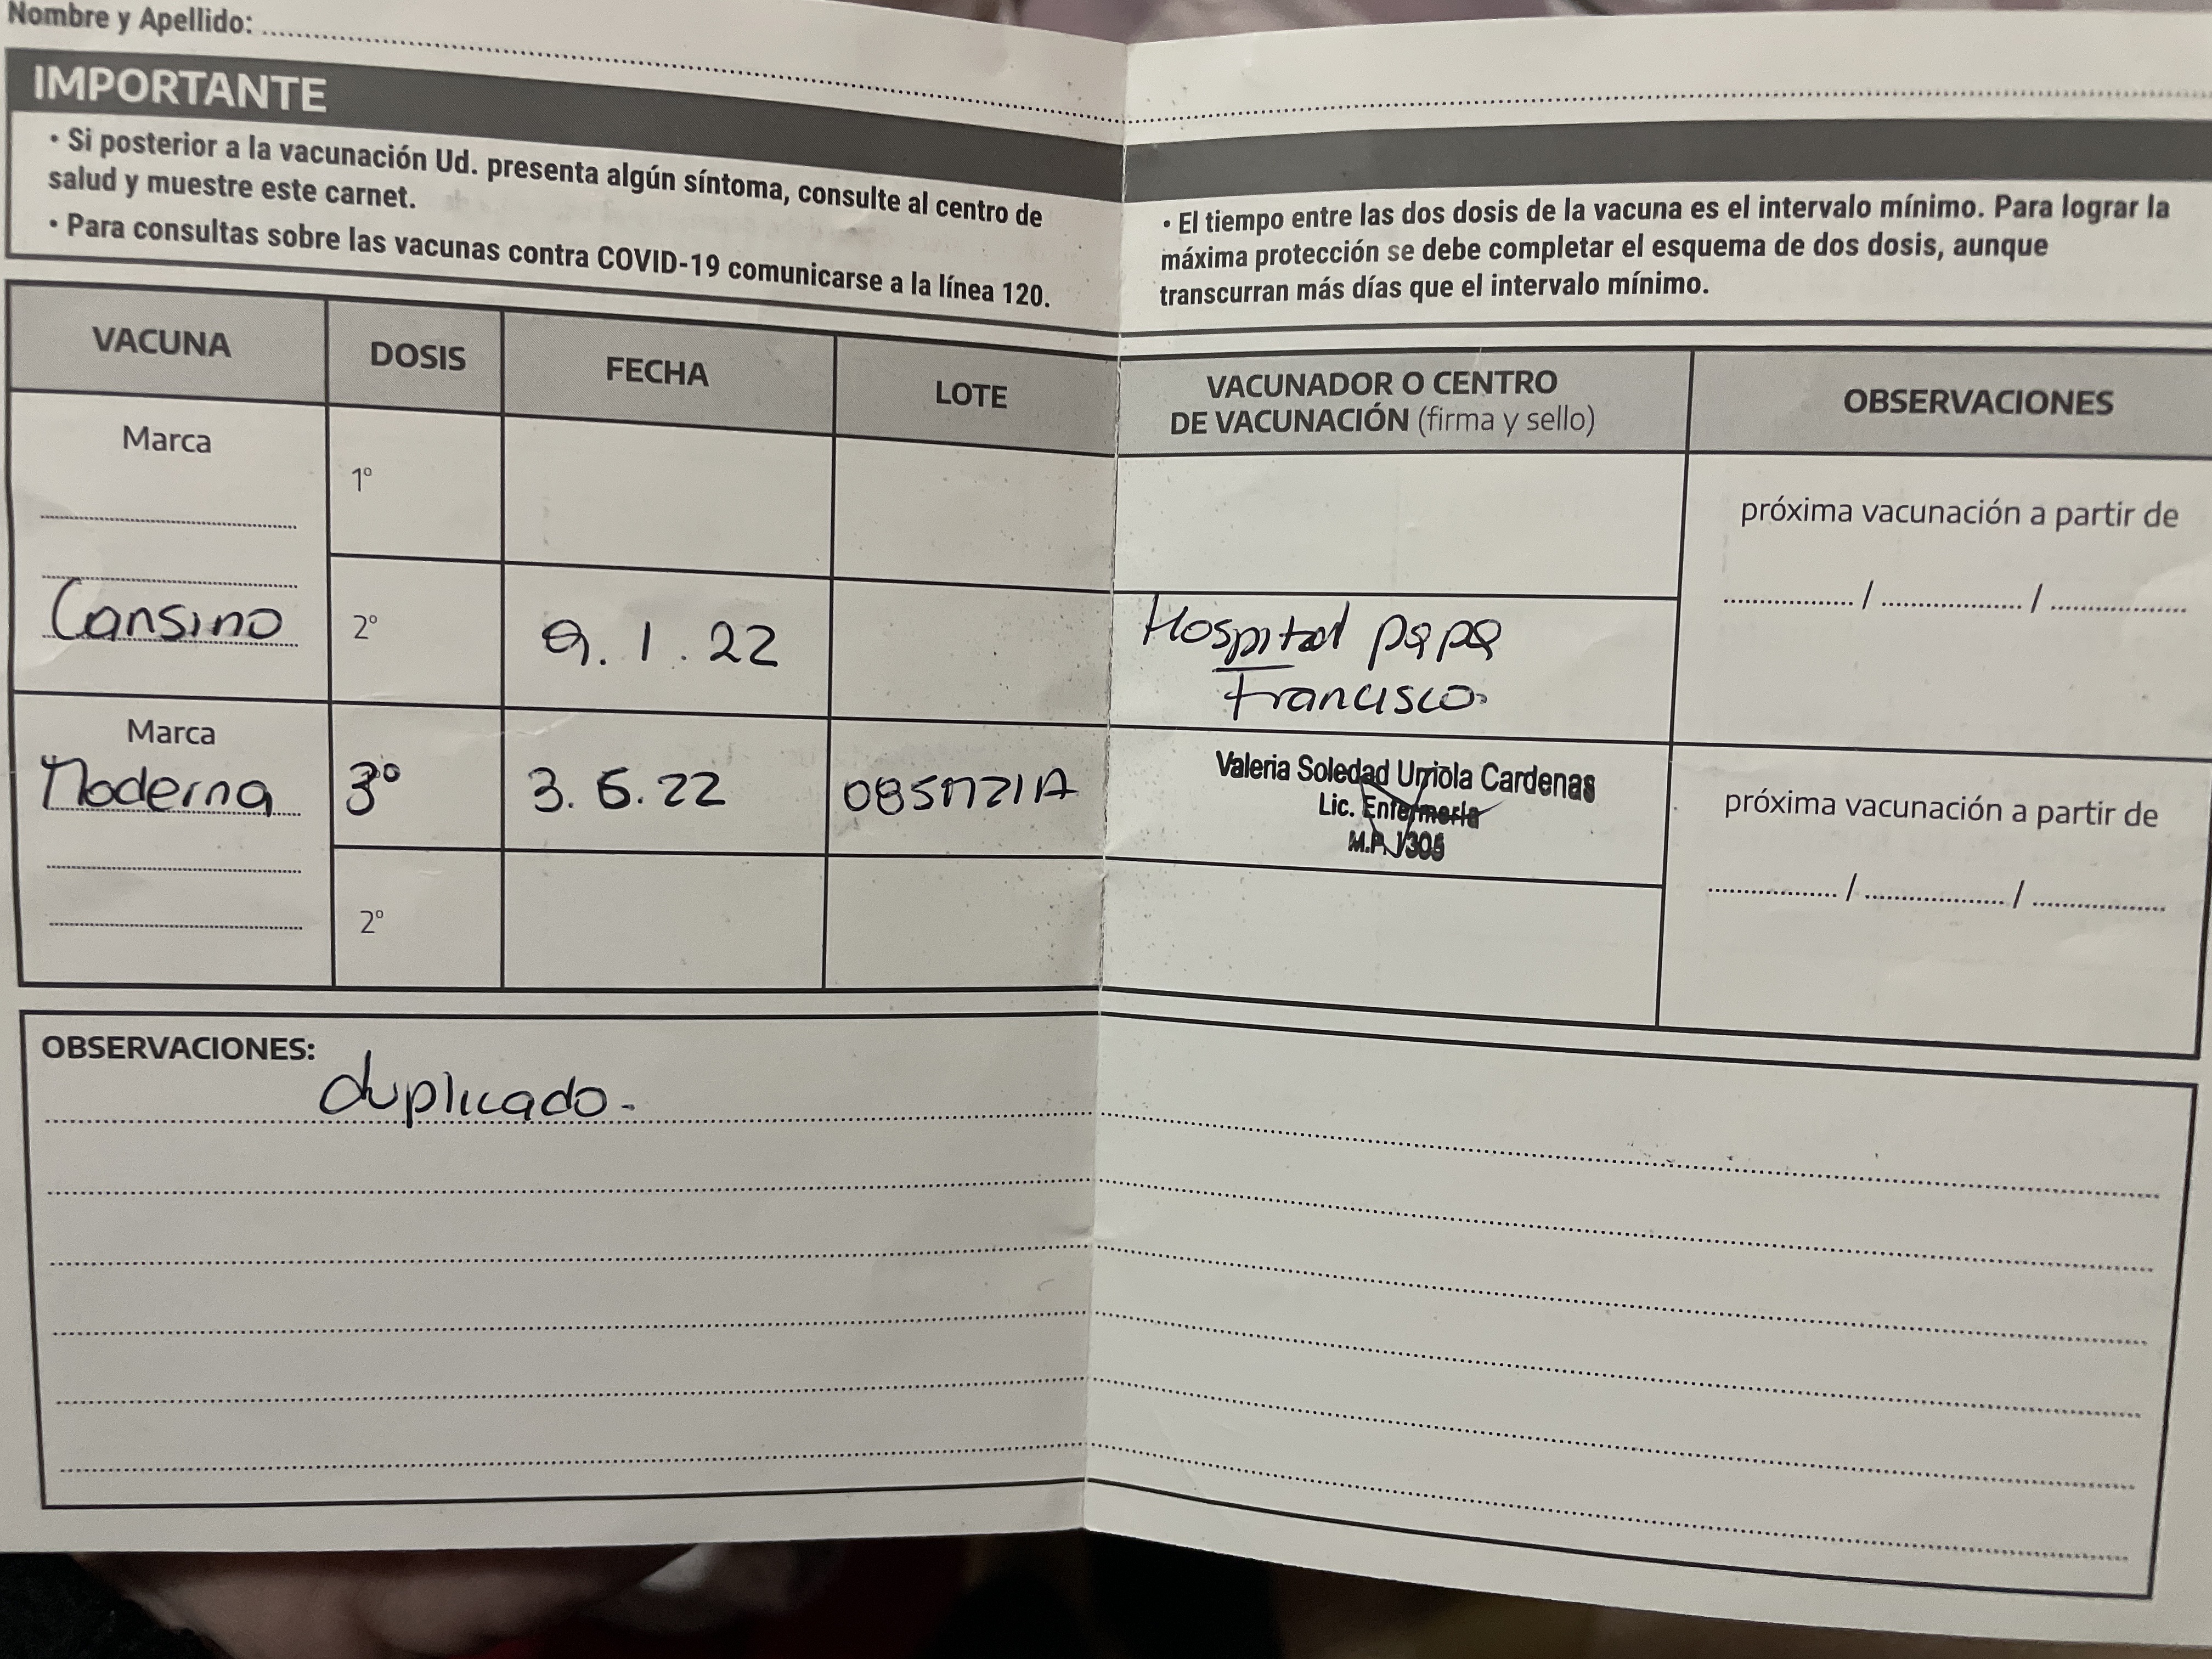 Nombre y Apellido:
IMPORTANTE
• Si posterior a la vacunación Ud. presenta algún síntoma, consulte al centro de
salud y muestre este carnet.
• Para consultas sobre las vacunas contra COVID-19 comunicarse a la línea 120.
• El tiempo entre las dos dosis de la vacuna es el intervalo mínimo. Para lograr la
máxima protección se debe completar el esquema de dos dosis, aunque
transcurran más días que el intervalo mínimo.
VACUNA DOSIS FECHA LOTE VACUNADOR O CENTRO
DE VACUNACIÓN (firma y sello) OBSERVACIONES
Marca
1º
próxima vacunación a partir de
/ /
Cansino 2º 9. 1. 22 Hospital papa
Francisco.
Marca
Moderna 3º 3. 6. 22
Valeria Soledad Urriola Cardenas
Lic. Enfermería
M.P. 1305
próxima vacunación a partir de
/ /
2º
OBSERVACIONES:
duplicado.